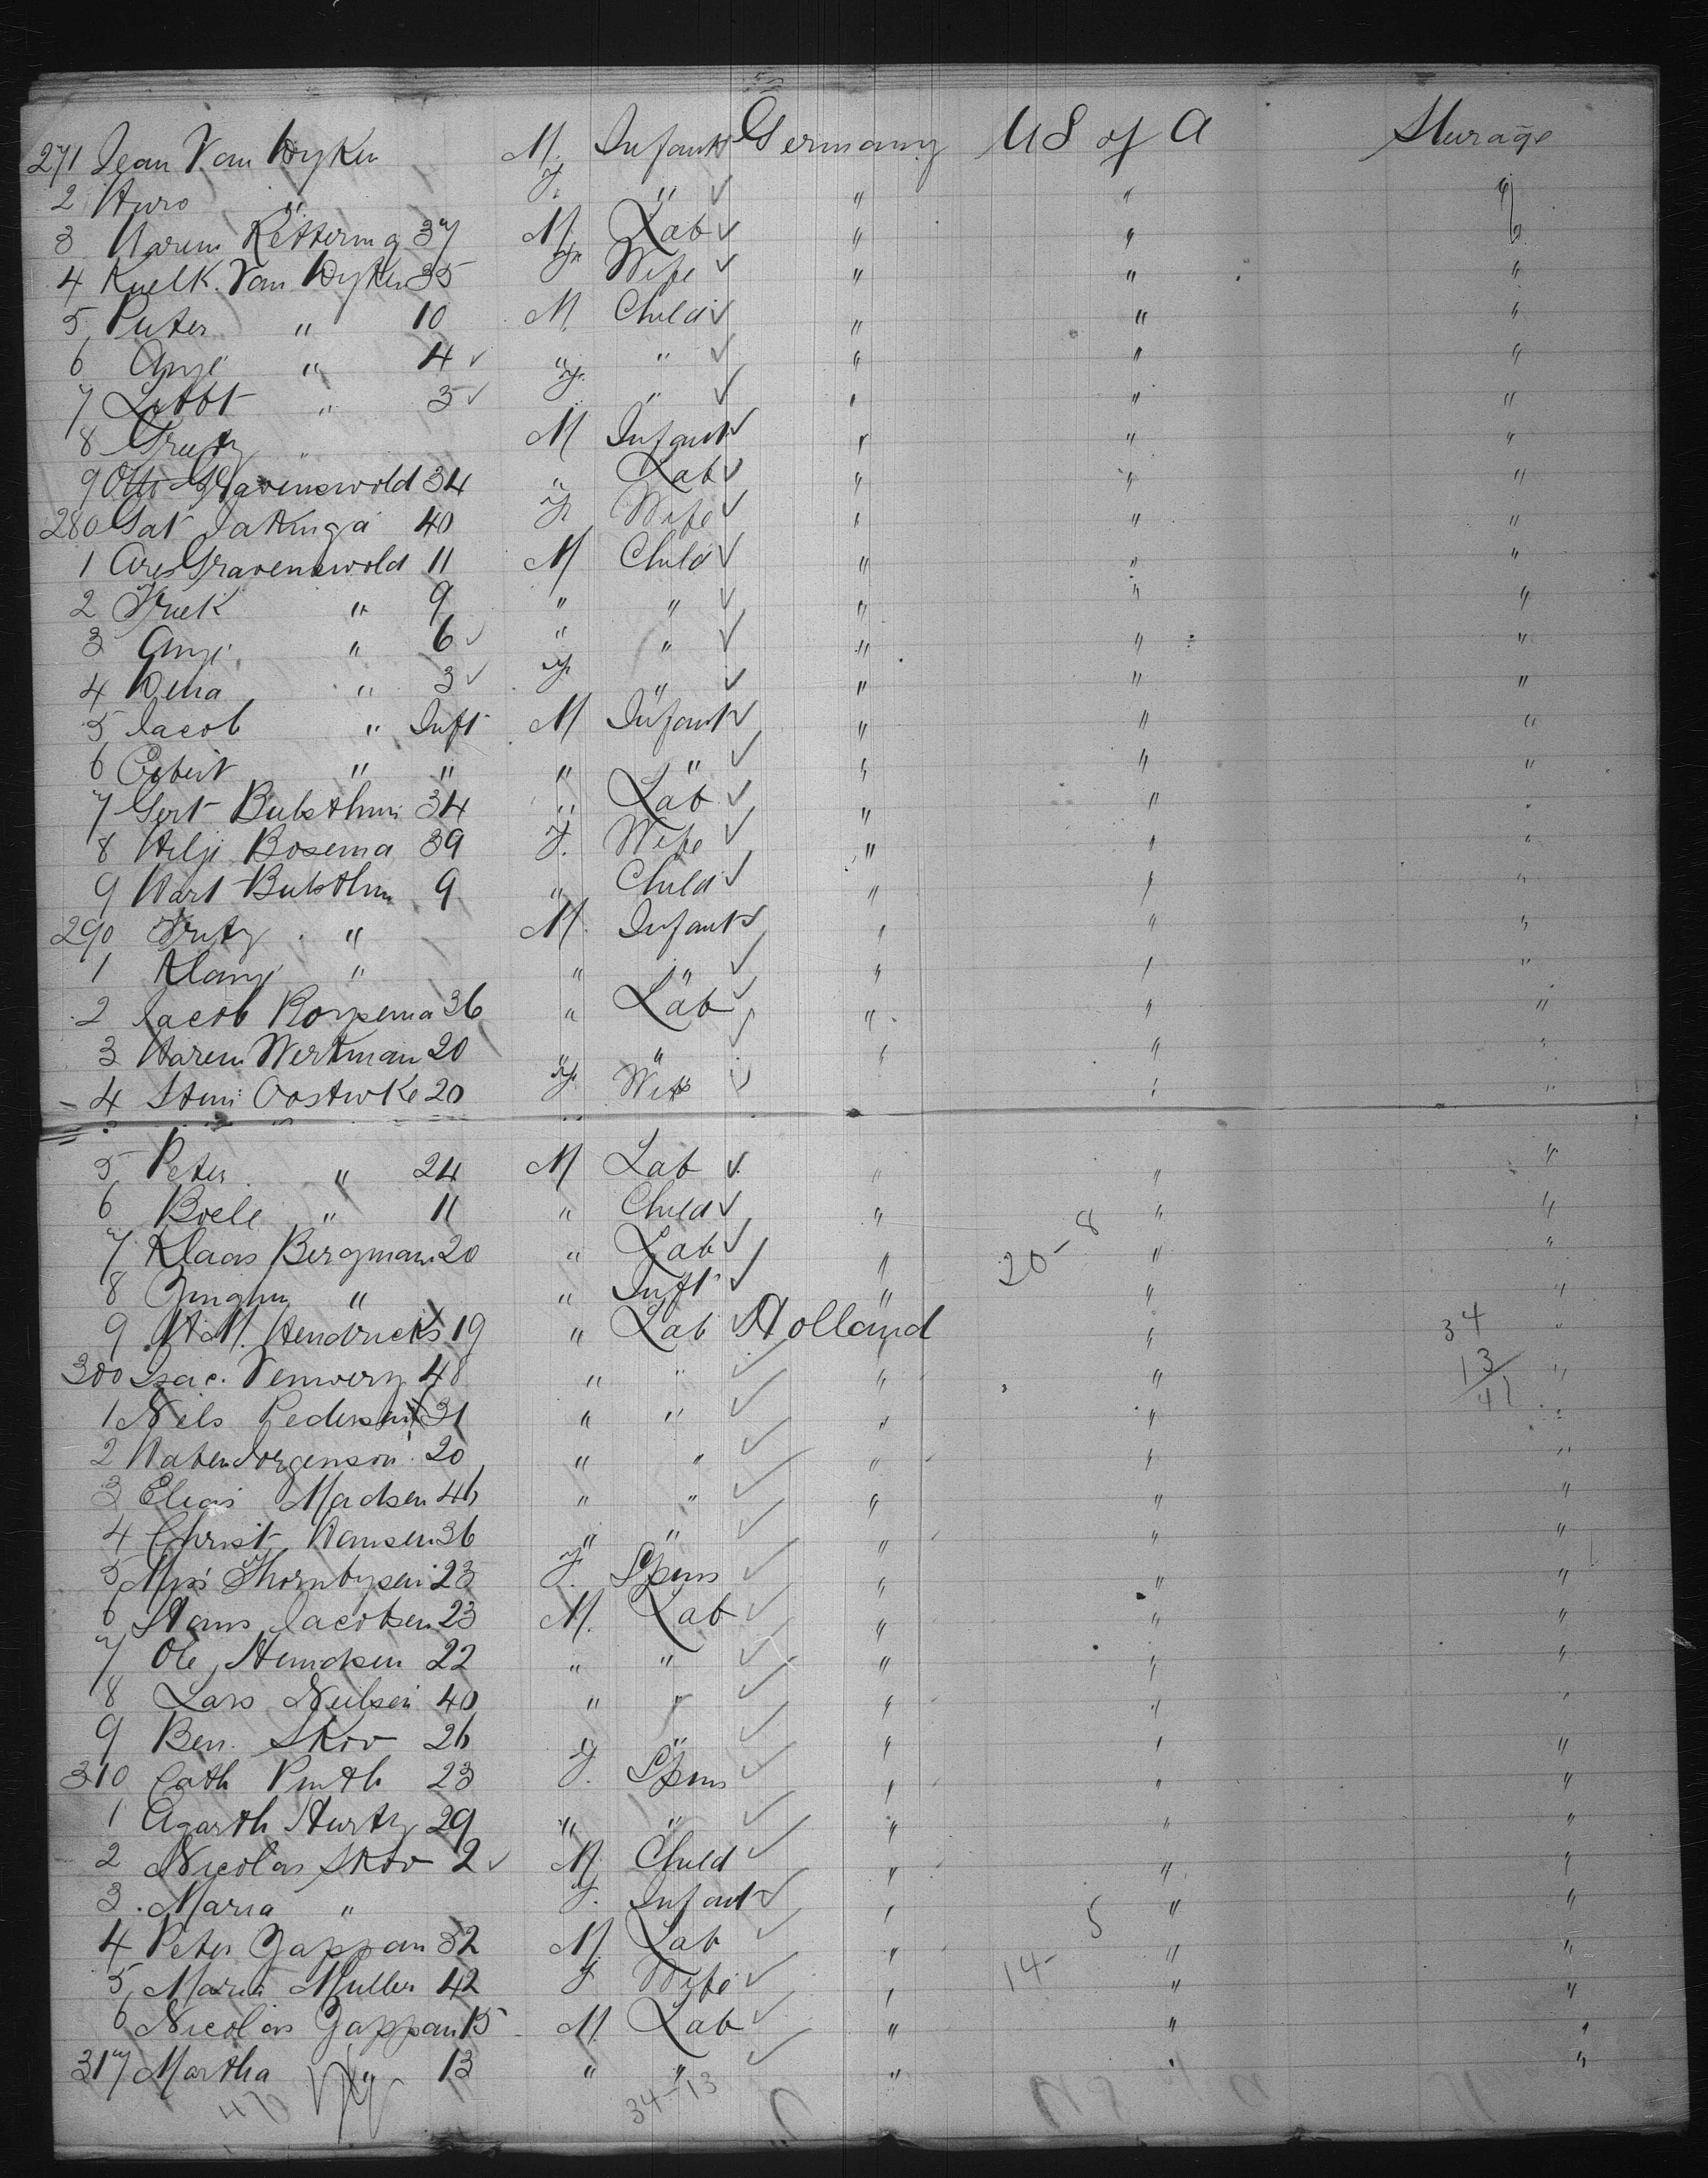 271 Jean Van Dyken M. Infant Germany US of A Sturage
2 Huro " F. " " " "
3 Harem Kettering 37 M. Lab " " "
4 Knelk. Van Dyken 35 F. Wife " " "
5 Puter " 10 M. Child " " "
6 Anje " 4 " " " " "
7 Lubbt " 3 F. " " " "
8 " M Infant " " "
9 Otto Gravenswold 34 " Lab " " "
280 Gat Jakinga 40 F Wife " " "
1 Ares Gravenswold 11 M Child " " "
2 Friek " 9 " " " " "
3 Anje " 6 " " " " "
4 Dena " 3 F. " " " "
5 Jacob " Inft M Infant " " "
6 Egbert " " " " " " "
7 Gert Bulsthun 34 " Lab " " "
8 Hilje Bosema 39 F. Wife " " "
9 Hart Bulsthun 9 " Child " " "
290 Fritz " M. Infant " " "
1 Klanje " " " " " "
2 Jacob Rorpema 36 " Lab " " "
3 Harem Werkman 20 " " " " "
4 Stuni Oostwke 20 F. Wife " "
5 Peter " 24 M Lab " " "
6 Boele " 11 " Child " " "
7 Klaas Bergman 20 " Lab " 20-8 " "
8 " " Inft " " "
9 H.M. Hendricks 19 " Lab Holland " 34 "
300 Isac. Venwery 48 " " " " 13 "
1 Nels Pedersen 31 " " " " 41 "
2 Haben Jorgenson 20 " " " " "
3 Elias Madsen 46 " " " " "
4 Christ Hansen 36 " " " " "
5 Miss Thornbysen 23 F. Spins " " "
6 Hans Jacobsen 23 M. Lab " " "
7 Ole Hendksen 22 " " " " "
8 Lars Neilsen 40 " " " " "
9 Ben. Skov 26 " " " " "
310 Cath Pinth 23 F. Spins " " "
1 Agarth Hurtz 29 " " " " "
2 Nicolas Skov 2 M Child " " "
3 Maria " F. Infant " " "
4 Peter Gappan 32 M. Lab " 14-5 " "
5 Maria Muller 42 F Wife " " "
6 Nicolas Gappan 15 M. Lab " " "
317 Martha " 13 " " " " "
34-13